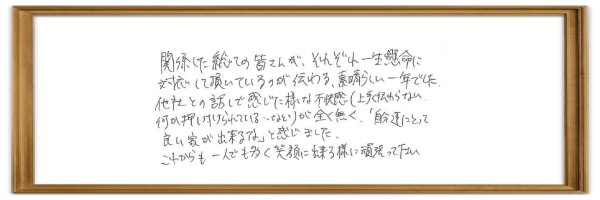 関係した総ての皆さんが、それぞれ一生懸命に
対応して頂いているのが伝わる、素晴らしい一年でした。
他社との話しで感じた様な不快感(上手く伝わらない、
何か押し付けられている…など)が全く無く、「自分達にとって
良い家が出来るな」と感じました。
これからも一人でも多く笑顔に出来る様に頑張って下さい